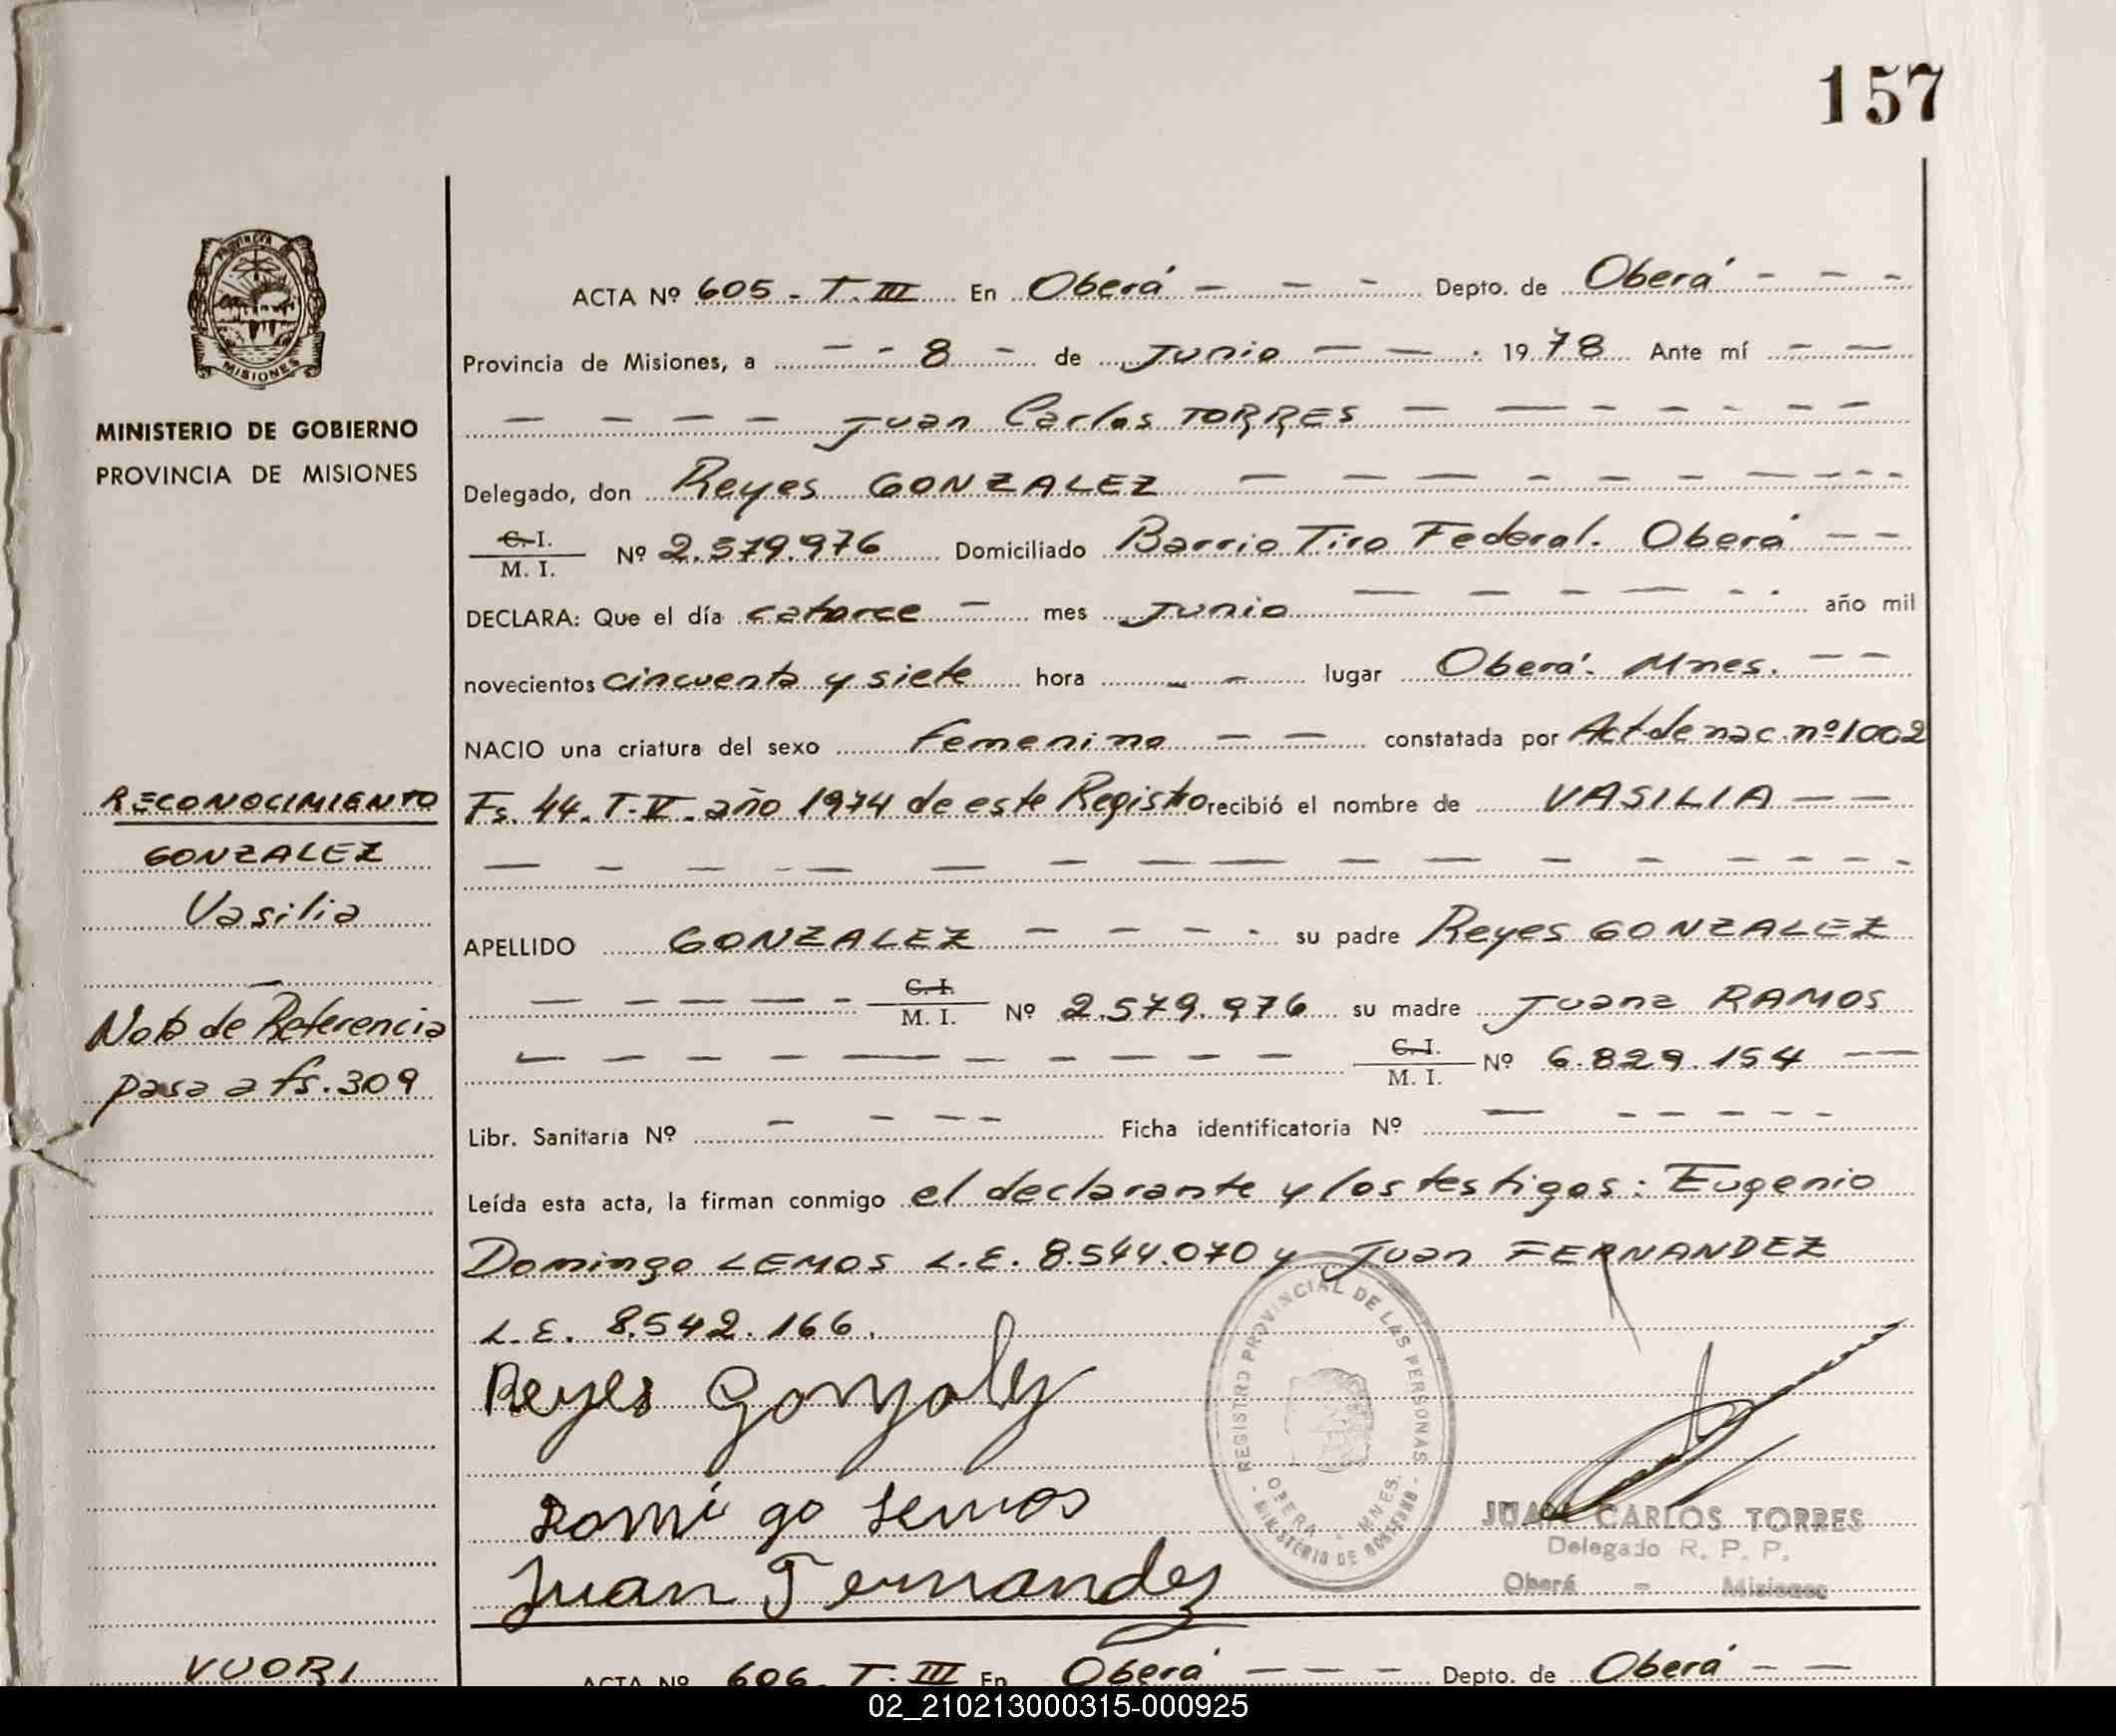 157
PROVINCIA
MISIONES
MINISTERIO DE GOBIERNO
PROVINCIA DE MISIONES
RECONOCIMIENTO
GONZALEZ
Vasilia
Nota de Referencia
pasa a fs. 309
ACTA Nº 605 - T. III En Oberá - - - Depto. de Oberá - - -
Provincia de Misiones, a - - 8 - de Junio - - . 1978 Ante mí - -
- - - - Juan Carlos TORRES - - - - - - -
Delegado, don Reyes GONZALEZ - - - - - - - - - -
C. I. / M. I. Nº 2.579.976 Domiciliado Barrio Tiro Federal. Oberá - -
DECLARA: Que el día catorce - mes Junio - - - - - - año mil
novecientos cincuenta y siete hora - - lugar Oberá. Mnes. - -
NACIO una criatura del sexo femenino - - constatada por Act de nac. nº 1002
Fs. 44. T. V. año 1974 de este Registro recibió el nombre de VASILIA - -
- - - - - - - - - - - - - - - -
APELLIDO GONZALEZ - - - - su padre Reyes GONZALEZ
- - - - - - C. I. / M. I. Nº 2.579.976 su madre Juana RAMOS
- - - - - - - - - C. I. / M. I. Nº 6.829.154 - -
Libr. Sanitaria Nº - - - - Ficha identificatoria Nº - - - - - -
Leída esta acta, la firman conmigo el declarante y los testigos: Eugenio
Domingo LEMOS L.E. 8.544.070 y Juan FERNANDEZ
L.E. 8.542.166.
Reyes Gonzalez
Domigo Lemos
Juan Fernandez
REGISTRO PROVINCIAL DE LAS PERSONAS
OBERA - MNES.
MINISTERIO DE GOBIERNO
JUAN CARLOS TORRES
Delegado R. P. P.
Oberá - Misiones
VUORI
ACTA Nº 606 T. III En Oberá - - - Depto. de Oberá - -
02_210213000315-000925